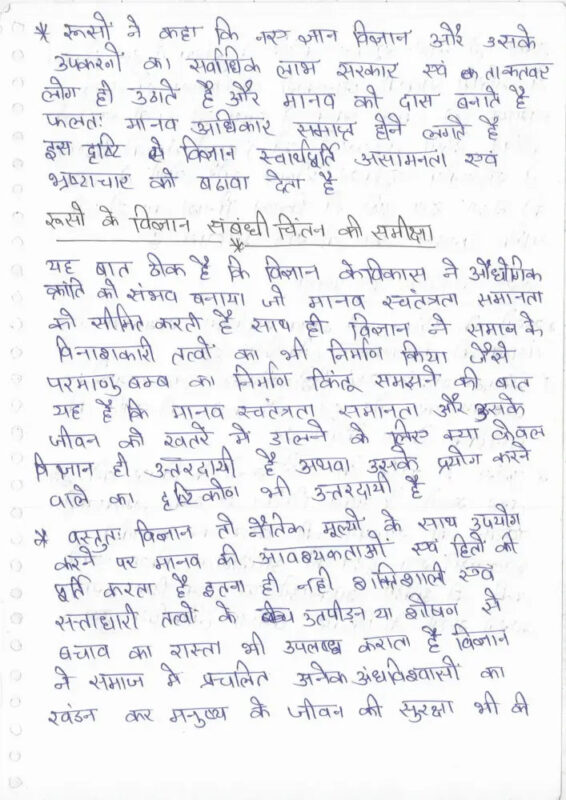 * रूसों ने कहा कि नए ज्ञान विज्ञान और उसके
उपकरनों का सर्वाधिक लाभ सरकार एवं ताकतवर
लोग ही उठाते है और मानव को दास बनाते है
फलतः मानव अधिकार समाप्त होने लगते है
इस दृष्टि से विज्ञान स्वार्थपूर्ति असामनता एवं
भ्रष्टाचार को बढावा देता है
रूसो के विज्ञान संबंधी चिंतन की समीक्षा
*
यह बात ठीक है कि विज्ञान के विकास ने औधोगिक
क्रांति को संभव बनाया जो मानव स्वतंत्रता समानता
को सीमित करती है साथ ही विज्ञान ने समाज के
विनाशकारी तत्वों का भी निर्माण किया जैसे
परमाणु बम्ब का निर्माण किंतू समझने की बात
यह है कि मानव स्वतंत्रता समानता और उसके
जीवन को खतरे में डालने के लिए क्या केवल
विज्ञान ही उत्तरदायी है अथवा उसके प्रयोग करने
वाले का दृष्टिकोण भी उत्तरदायी है
* वस्तुतः विज्ञान तो नैतिक मूल्यों के साथ उपयोग
करने पर मानव की आवश्यकताओं एवं हितों की
पूर्ति करता है इतना ही नही शक्तिशाली एवं
सत्ताधारी तत्वों के बीच उत्पीडन या शोषण से
बचाव का रास्ता भी उपलब्ध कराता है विज्ञान
ने समाज मे प्रचलित अनेक अंधविश्वासों का
खंडन कर मनुष्य के जीवन की सुरक्षा भी की